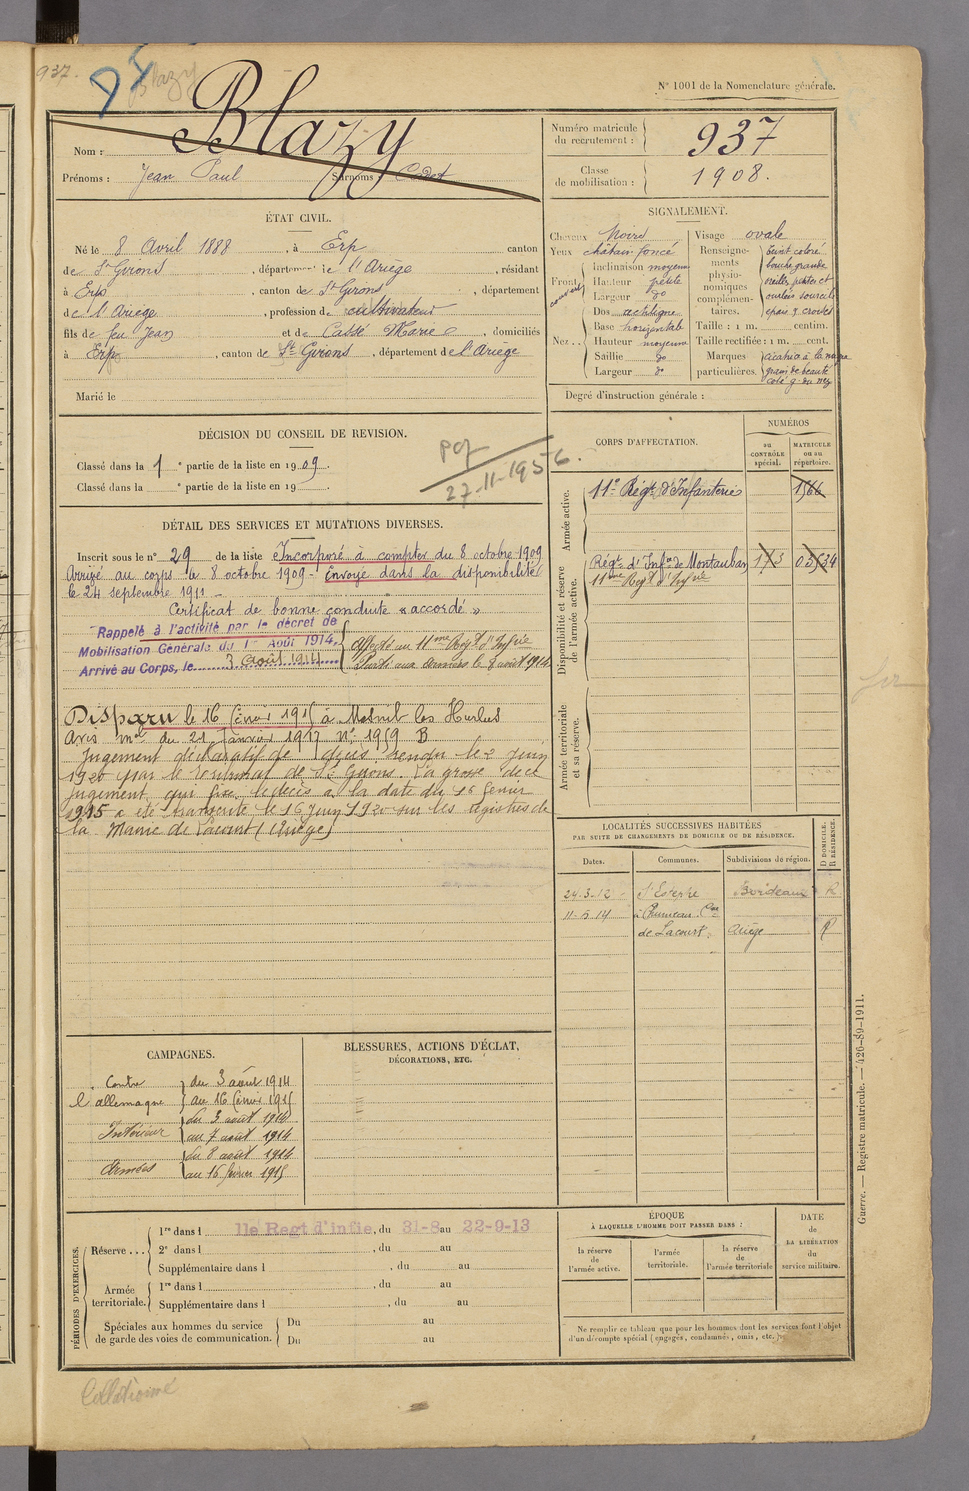 937.
Blazy
N° 1001 de la Nomenclature générale.
Nom : Blazy
Prénoms : Jean Paul Surnoms : Cadet
Numéro matricule du recrutement : 937
Classe de mobilisation : 1908.
ÉTAT CIVIL.
Né le 8 Avril 1888, à Erp canton
de St Girons, département de l'Ariège, résidant
à Erp, canton de St Girons, département
de l'Ariège, profession de cultivateur
fils de feu Jean et de Cassé Marie, domiciliés
à Erp, canton de St Girons, département de l'Ariège
Marié le
SIGNALEMENT.
Cheveux Noirs
Yeux châtain foncé
Front Inclinaison moyenne
Hauteur petite
Largeur do
Nez Dos rectiligne
Base horizontale
Hauteur moyenne
Saillie do
Largeur do
Visage ovale
Renseignements physionomiques complémentaires. teint coloré
bouche grande
oreilles petites et
ourlées sourcils
épais & croisés
Taille : 1 m. centim.
Taille rectifiée : 1 m. cent.
Marques particulières. cicatrice à la
grain de beauté
coté g. du nez
Degré d'instruction générale :
DÉCISION DU CONSEIL DE REVISION.
Classé dans la 1e partie de la liste en 1909.
Classé dans la e partie de la liste en 19
27-11-1956.
DÉTAIL DES SERVICES ET MUTATIONS DIVERSES.
Inscrit sous le n° 29 de la liste Incorporé à compter du 8 octobre 1909
Arrivé au corps le 8 octobre 1909 - Envoyé dans la disponibilité
le 24 septembre 1911 -
Certificat de bonne conduite « accordé »
Rappelé à l'activité par le décret de
Mobilisation Générale du 1er Août 1914.
Arrivé au Corps, le 3 août 1914
Affecté au 11me Régt d'Infrie
Parti aux armées le 8 août 1914
Disparu le 16 février 1915 à Mesnil les Hurlus
Avis mel du 21 Janvier 1917 n° 1959 B
Jugement déclaratif de décès rendu le 2 Juin
1920 par le Tribunal de St Girons. La grosse de ce
jugement, qui fixe le décès à la date du 16 février
1915 a été transcrite le 16 Juin 1920 sur les registres de
la Mairie de Lacourt (Ariège)
CORPS D'AFFECTATION.
NUMÉROS
au CONTRÔLE spécial.
MATRICULE ou au répertoire.
Armée active.
11e Régt d'Infanterie 1566
Disponibilité et réserve de l'armée active.
Régt d'Infrie de Montauban
11me Régt d'Infrie
Armée territoriale et sa réserve.
LOCALITÉS SUCCESSIVES HABITÉES
PAR SUITE DE CHANGEMENTS DE DOMICILE OU DE RÉSIDENCE.
Dates. Communes. Subdivisions de région. D DOMICILE. R RÉSIDENCE.
24-3-12 St Estèphe Bordeaux R
11-5-14
de Lacourt. Ariège R
CAMPAGNES.
Contre l'allemagne du 3 août 1914
au 16 février 1915
Intérieur du 3 août 1914
au 7 août 1914
Armées du 8 août 1914
au 16 février 1915
BLESSURES, ACTIONS D'ÉCLAT,
DÉCORATIONS, ETC.
PÉRIODES D'EXERCICES.
Réserve ... 1re dans l 11e Regt d'infie, du 31-8 au 22-9-13
2e dans l , du au
Supplémentaire dans l , du au
Armée territoriale. 1re dans l , du au
Supplémentaire dans l , du au
Spéciales aux hommes du service de garde des voies de communication. Du au
Du au
ÉPOQUE
À LAQUELLE L'HOMME DOIT PASSER DANS :
la réserve de l'armée active.
l'armée territoriale.
la réserve de l'armée territoriale
DATE de LA LIBÉRATION du service militaire.
Ne remplir ce tableau que pour les hommes dont les services font l'objet
d'un décompte spécial (engagés, condamnés, omis, etc.)
Guerre. — Registre matricule. — 426-89-1911.
Collationné